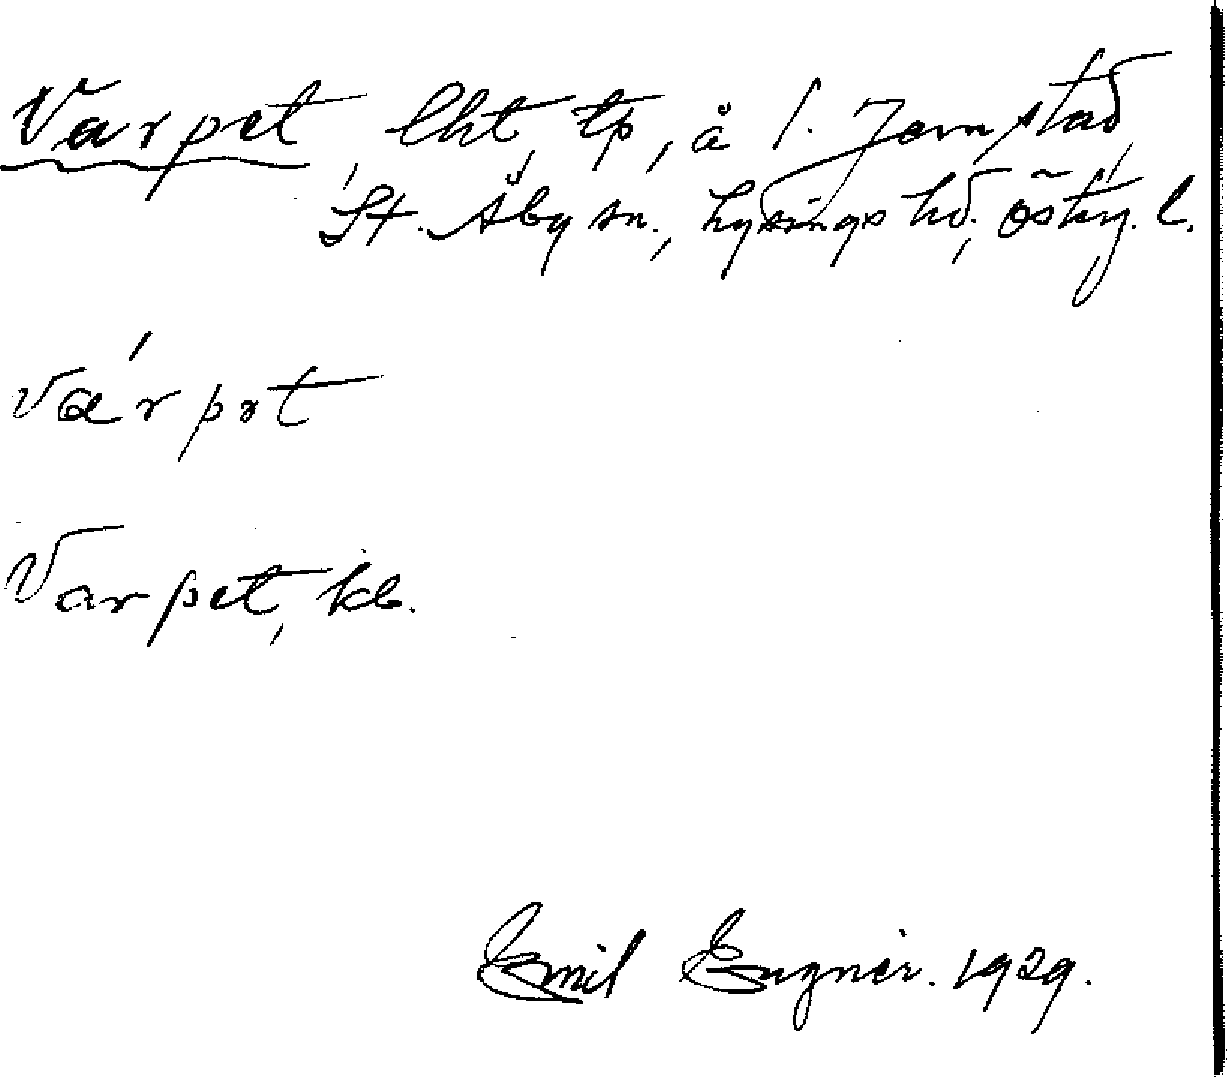 Varpet, lht, tp, å l. Jernstad,
St. Åby sn., Lysings hd, Östrg. l.
várpɘt
Varpet, kb.
Emil Eugnér. 1929.